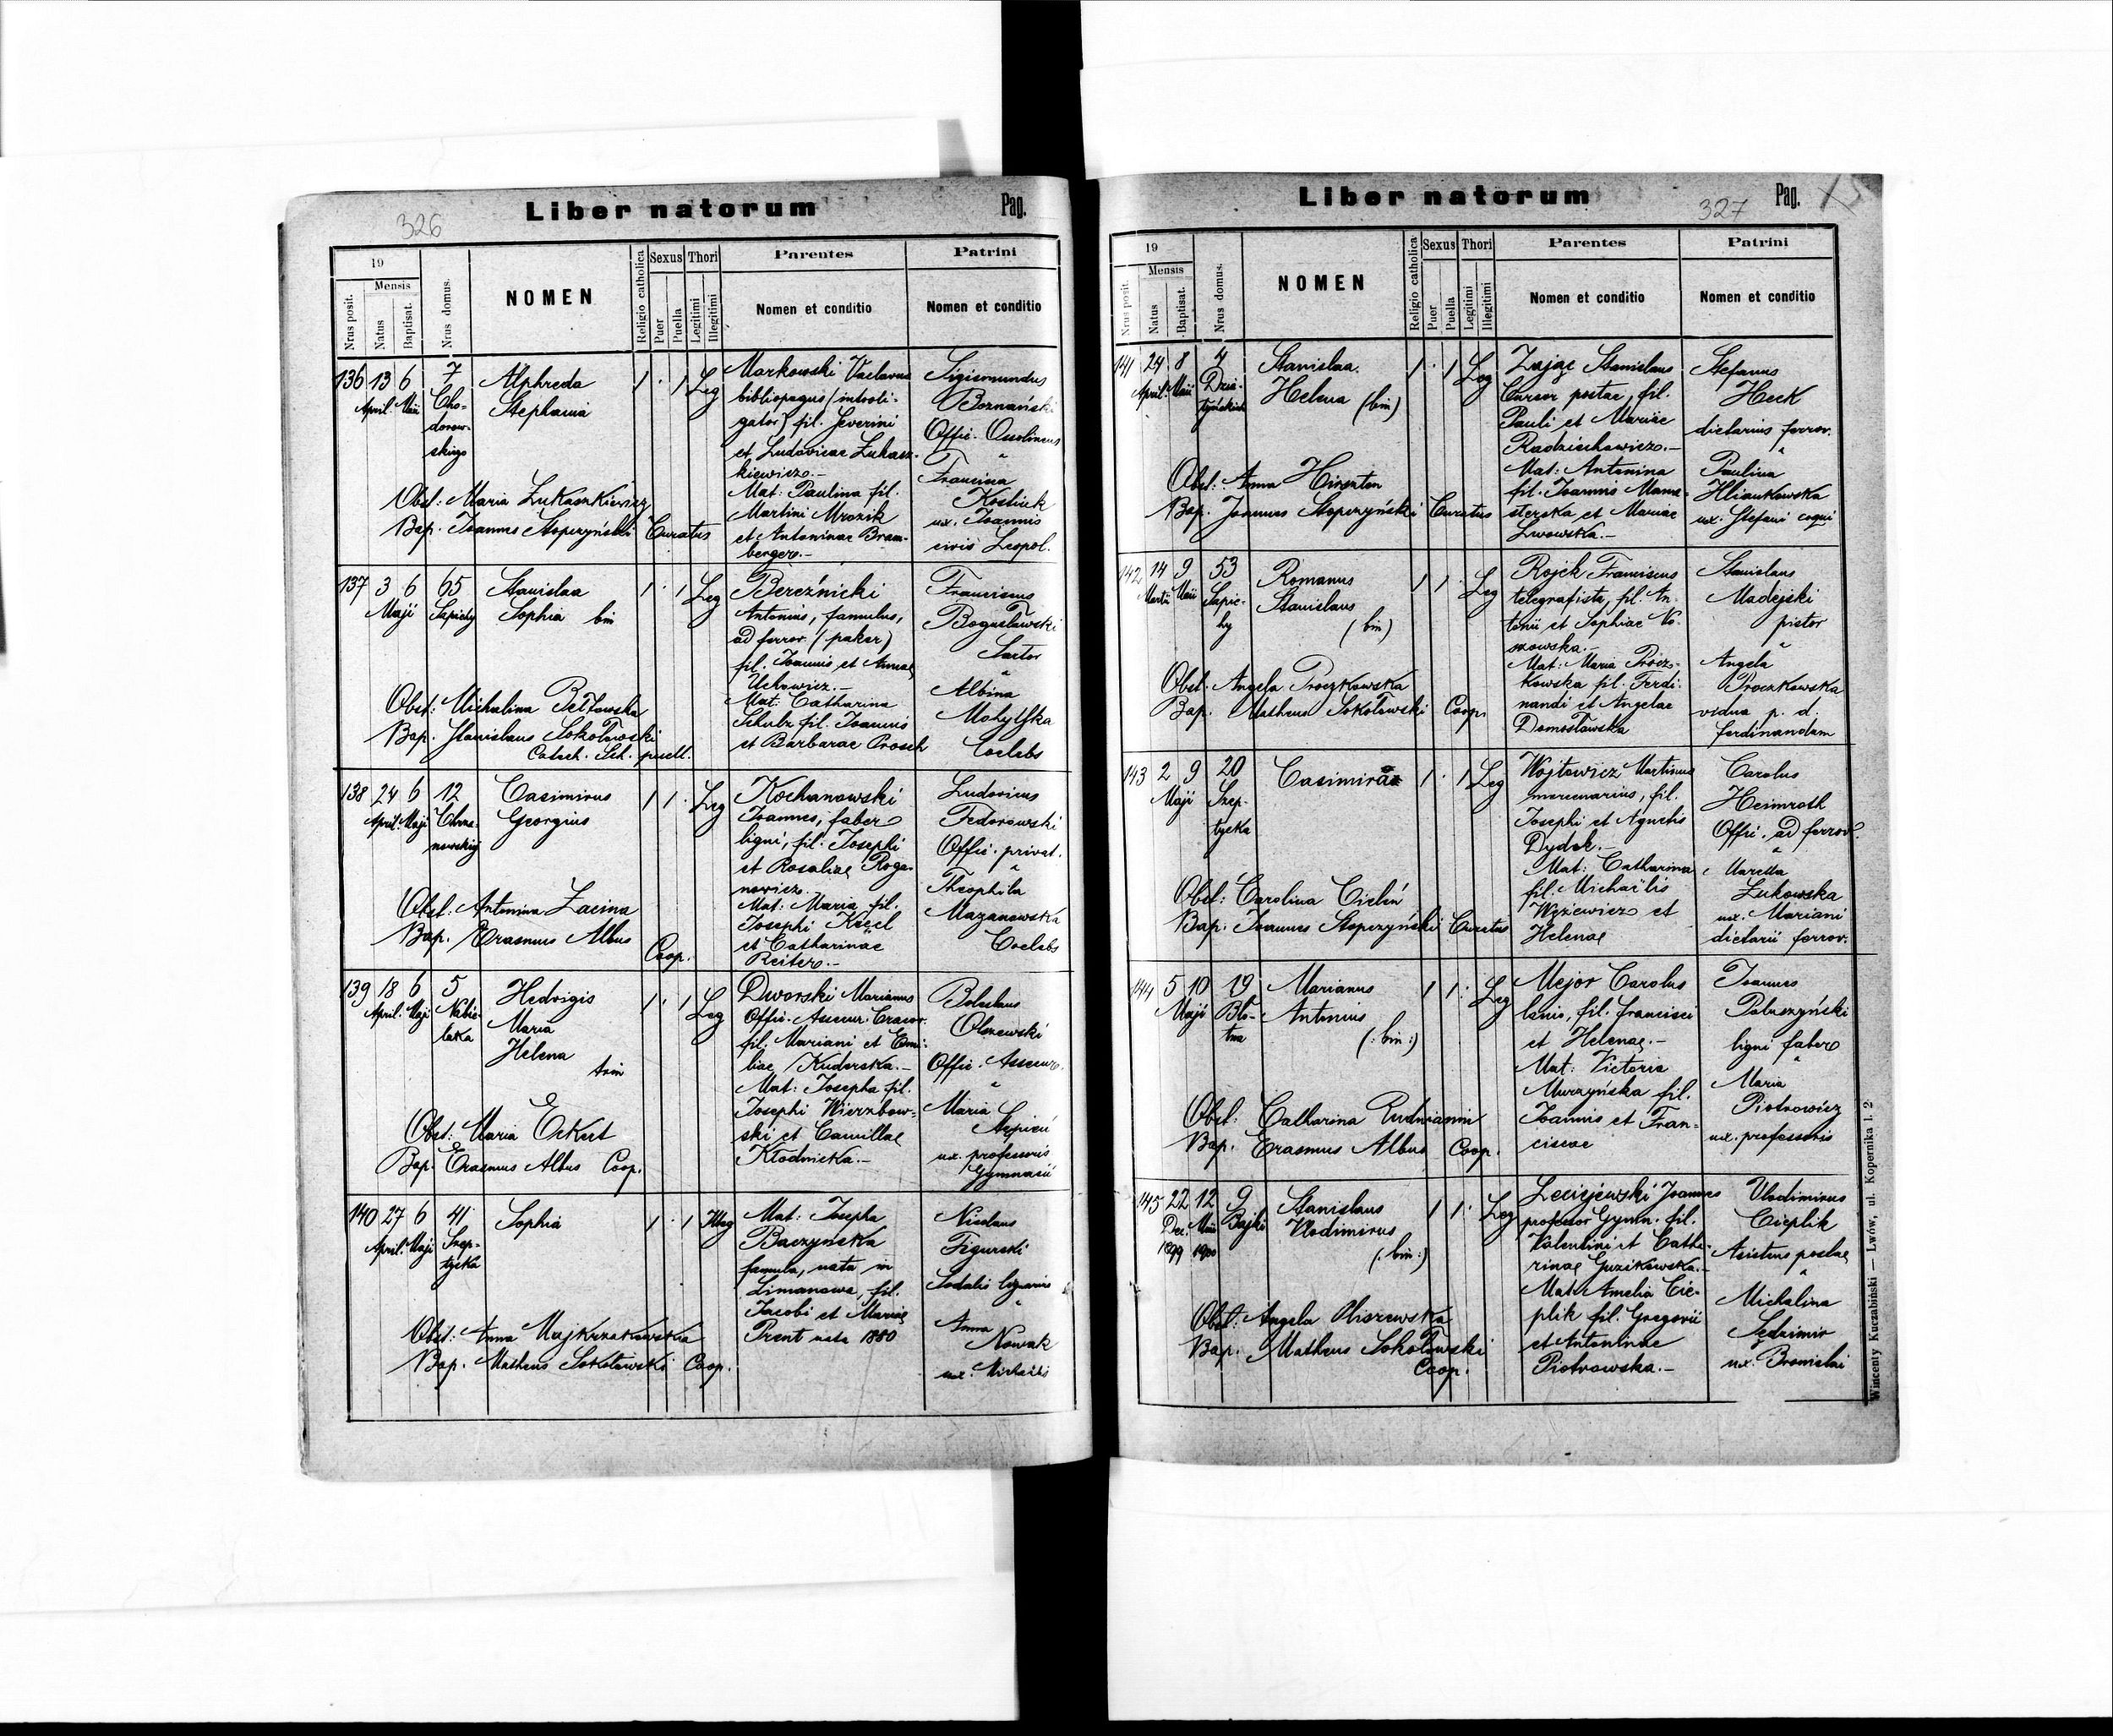 326
Liber natorum
Pag.
19
Mensis
Nrus posit.
Natus
Baptisat.
Nrus domus.
NOMEN
Religio catholica
Sexus
Puer
Puella
Thori
Legitimi
Illegitimi
Parentes
Nomen et conditio
Patrini
Nomen et conditio
136 13 6 7
April. Maii
Cho-
dorow-
skiego
Alphreda
Stephania
1 · 1 Leg
Markowski Vaclavus
bibliopagus (introli-
gator) fil. Severini
et Ludovicae Łukasz-
kiewicz.-
Mat: Paulina fil.
Martini Mrozik
et Antoninae Bram-
berger.-
Sigismundus
Boznański
Offic. Ossolineus
"
Francina
Kostiuk
ux. Joannis
civis Leopol.
Obst: Maria Łukaszkiewicz
Bap. Joannes Stopczyński Curatus
137 3 6 65
Maji Sapiehy
Stanislaa
Sophia bin
1 · 1 Leg
Bereźnicki
Antonius, famulus,
ad ferrov. (pakar)
fil. Joannis et Annae
Uchowicz.-
Mat: Catharina
Schulz fil. Joannis
et Barbarae Prosch
Franciscus
Bogusławski
Sartor
"
Albina
Mohylska
Coelebs
Obst: Michalina Bełtowska
Bap. Stanislaus Sokołowski
Catech. Sch. puell.
138 24 6 12
April. Maji Chrza-
nowskiej
Casimirus
Georgius
1 1 · Leg
Kochanowski
Joannes, faber
ligni, fil. Josephi
et Rosaliae Roga-
nowicz.
Mat: Maria fil.
Josephi
et Catharinae
Reiter.-
Ludovicus
Fedorowski
Offic. privat.
"
Theophila
Mazanowska
Coelebs
Obst: Antonina Zacina
Bap. Erasmus Albus Coop.
139 18 6 5
April. Maji Nabie-
laka
Hedvigis
Maria
Helena
trin
1 · 1 Leg
Dworski Marianus
Offic. Assecur. Cracov.
fil. Mariani et Emi-
liae Kuderska.-
Mat: Josepha fil.
Josephi Wierzbow-
ski et Camillae
Kłodnicka.-
Boleslaus
Olszewski
Offic. Assecur.
"
Maria
Stępień
ux. professoris
Gymnasii
Obst: Maria Eckert
Bap. Erasmus Albus Coop.
140 27 6 41
April. Maji Szep-
tycka
Sophia
1 · 1 Illeg
Mat: Josepha
Baczyńska
famula, nata in
Limanowa, fil.
Jacobi et Mariae
Prent nata 1880
Nicolaus
Figurski
Sodalis
"
Anna
Nowak
ux. Michaëlis
Obst: Anna Majkrzakowska
Bap. Matheus Sokołowski Coop.
Liber natorum
327
Pag.
19
Mensis
Nrus posit.
Natus
Baptisat.
Nrus domus.
NOMEN
Religio catholica
Sexus
Puer
Puella
Thori
Legitimi
Illegitimi
Parentes
Nomen et conditio
Patrini
Nomen et conditio
141 24 8 4
April. Maii Dzia-
łyńskich
Stanislaa
Helena (bin)
1 · 1 Leg
Zając Stanislaus
Cursor postae, fil.
Pauli et Mariae
Radziechowicz.-
Mat: Antonina
fil. Joannis Mana-
sterska et Mariae
Lwowska.-
Stefanus
Heck
dietarius ferrov.
"
Paulina
Hliankowska
ux. Stefani coqui
Obst: Anna
Bap. Joannes Stopczyński Curatus
142 14 9 53
Martii Maii Sapie-
hy
Romanus
Stanislaus
(bin)
1 1 · Leg
Rojek Franciscus
telegrafista, fil. An-
tonii et Sophiae No-
szowska.-
Mat: Maria Procz-
kowska fil. Ferdi-
nandi et Angelae
Domosławska
Stanislaus
Madejski
pistor
"
Angela
Proczkowska
vidua p. d.
ferdinandum
Obst. Angela Proczkowska
Bap. Matheus Sokołowski Coop.
143 2 9 20
Maji Szep-
tycka
Casimira
1 · 1 Leg
Wojtowicz Martinus
mercenarius, fil.
Josephi et Agnetis
Dydek.-
Mat: Catharina
fil. Michaëlis
Wyżewicz et
Helenae
Carolus
Heimroth
Offic. ad ferrov.
"
Marcella
Żukowska
ux. Mariani
dietarii ferrov.
Obst: Carolina Cieleń
Bap. Joannes Stopczyński Curatus
144 5 10 19
Maji Bło-
tna
Marianus
Antonius
(: bin :)
1 1 · Leg
Mejor Carolus
lanio, fil. francisci
et Helenae.-
Mat: Victoria
Murzyńska fil.
Joannis et Fran-
ciscae
Joannes
Paluszyński
ligni faber
"
Maria
Piotrowicz
ux. professoris
Obst: Catharina Rudmann
Bap. Erasmus Albus Coop.
145 22 12 9
Dec. Maii Bajki
1899 1900
Stanislaus
Vlodimirus
(: bin :)
1 1 · Leg
Leciejewski Joannes
professor Gymn. fil.
Valentini et Catha-
rinae Guzikowska.-
Mat: Amelia Cie-
plik fil. Gregorii
et Antoninae
Piotrowska.-
Vlodimirus
Cieplik
Asistens postae
"
Michalina
Sędzimir
ux. Bronislai
Obst: Angela Oliszewska
Bap. Matheus Sokołowski
Coop.
Wincenty Kuczabiński — Lwów, ul. Kopernika l. 2